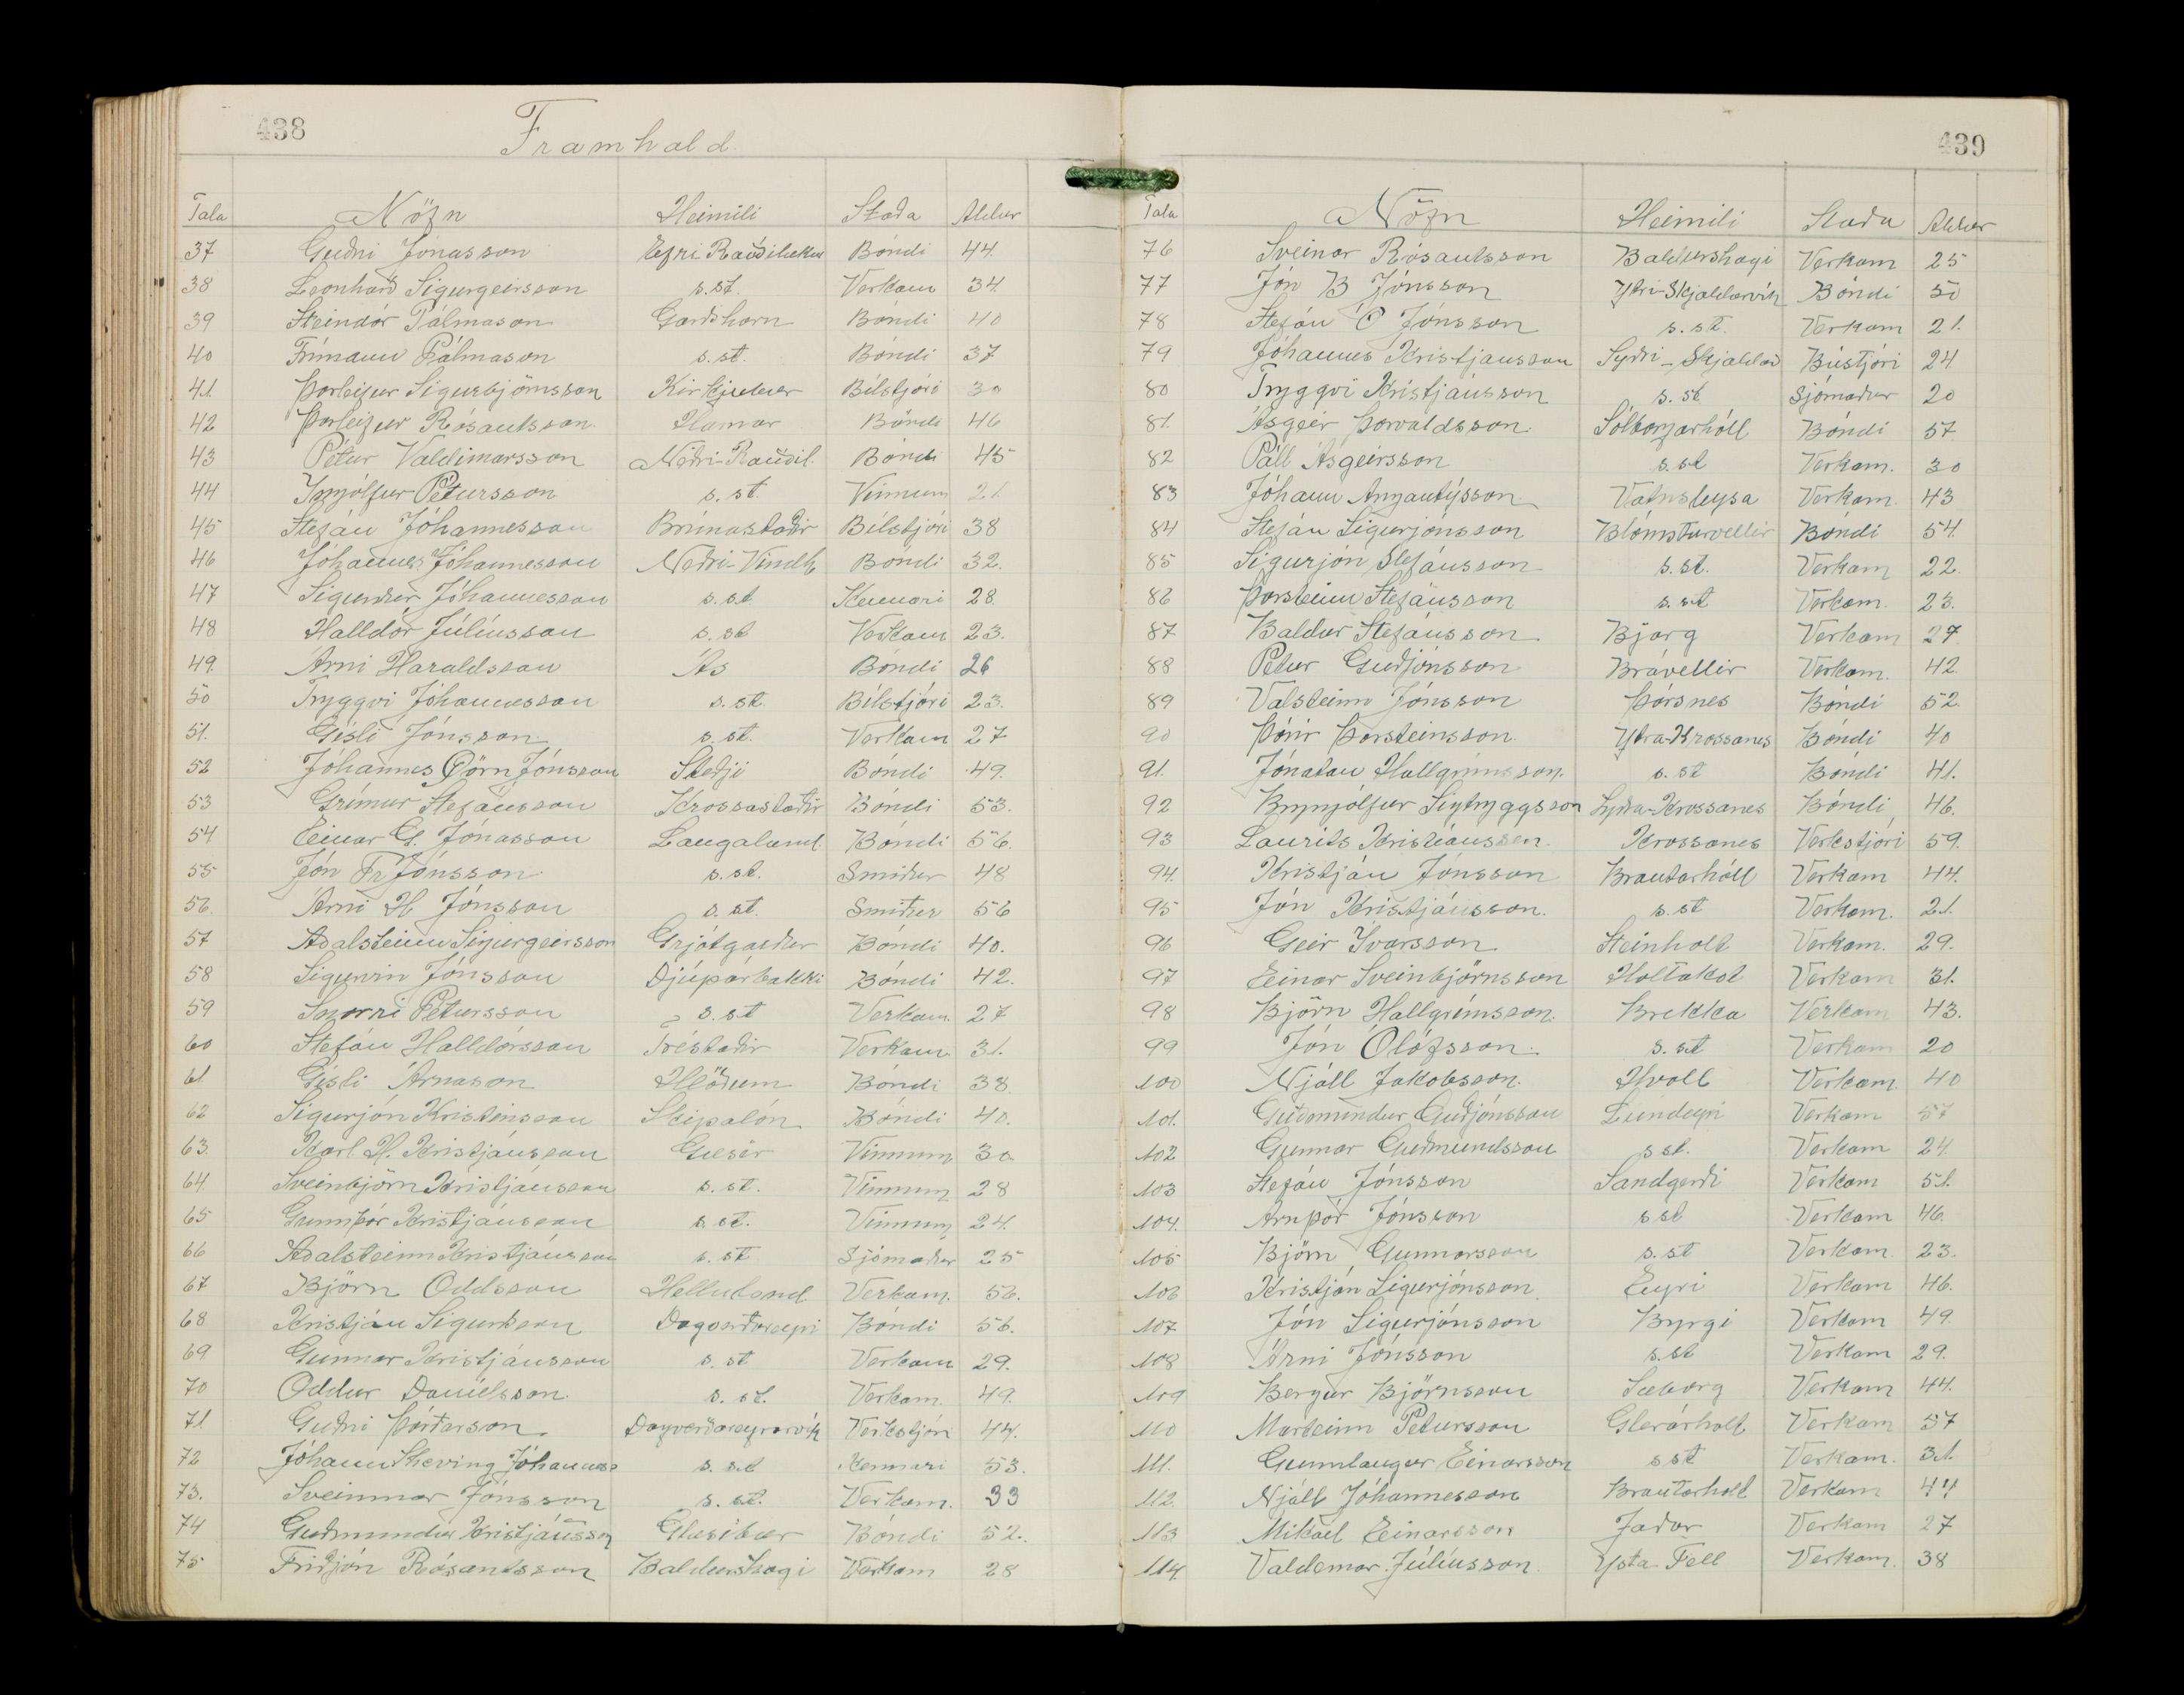 438
Framhald.
Tala Nöfn Heimili Staða Aldur
37 Guðni Jónasson Efri-Rauðilækur Bóndi 44.
38 Leonharð Sigurgeirsson s.st. Verkam 34
39 Steindór Pálmason Garðshorn Bóndi 40
40 Frímann Pálmason s.st. Bóndi 37
41. Þorleifur Sigurbjörnsson Kirkjubær Bílstjóri 30
42 Þorleifur Rósantsson. Hamar Bóndi 46
43 Pétur Valdimarsson Neðri-Rauðil. Bóndi 45
44 Ingólfur Pétursson s.st. Vinnum 21
45 Stefán Jóhannesson Brúnastaðir Bílstjóri 38
46 Jóhannes Jóhannesson Neðri-Vindh Bóndi 32.
47 Sigurður Jóhannesson s.st Kennari 28.
48 Halldór Júlíusson s.st Verkam 23.
49. Árni Haraldsson Ás Bóndi 26
50 Tryggvi Jóhannesson s.st. Bílstjóri 23.
51. Gísli Jónsson s.st. Verkam 27
52 Jóhannes Örn Jónsson Steðji Bóndi 49.
53 Grímur Stefánsson Krossastaðir Bóndi 53.
54 Einar G. Jónasson Laugaland. Bóndi 56.
55 Jón Fr Jónsson s.st. Smiður 48
56. Árni H Jónsson s.st. Smiður 56
57 Aðalsteinn Sigurgeirsson Grjótgarður Bóndi 40.
58 Sigurvin Jónsson Djúpárbakki Bóndi 42.
59 Snorri Pétursson s.st Verkam. 27
60 Stefán Halldórsson Tréstaðir Verkam. 31.
61 Gísli Árnason Hlöðum Bóndi 38.
62 Sigurjón Kristinsson Skipalón Bóndi 40.
63. Karl H. Kristjánsson Gæsir Vinnum 30
64. Sveinbjörn Kristjánsson s.st. Vinnum 28
65 Gunnþór Kristjánsson s.st. Vinnum 24.
66 Aðalsteinn Kristjánsson s.st Sjómaður 25
67 Björn Oddsson Helluland. Verkam. 56.
68 Kristján Sigurðsson Bóndi 56.
69 Gunnar Kristjánsson s.st Verkam 29.
70 Oddur Daníelsson. s.st. Verkam. 49.
71. Guðni Þórðarson Dagverðareyrarvík Verkstjóri 44.
72 Jóhann Scheving Jóhanness s.st Kennari 53.
73. Sveinmar Jónsson s.st. Verkam. 33
74 Guðmundur Kristjánsson Glæsibær Bóndi 52.
75 Friðjón Rósantsson Baldurshagi Verkam 28
439
Tala Nöfn Heimili Staða Aldur
76 Sveinar Rósantsson Baldurshagi Verkam 25
77 Jón B Jónsson Ytri-Skjaldarvík Bóndi 50
78 Stefán Ó Jónsson s.st. Verkam 21.
79 Jóhannes Kristjánsson Syðri-Skjaldar Bústjóri 24
80 Tryggvi Kristjánsson s.st. Sjómaður 20
81. Ásgeir Þorvaldsson. Sólborgarhóll Bóndi 57
82 Páll Ásgeirsson s.st Verkam. 30
83 Jóhann Angantýsson Vatnsleysa Verkam. 43
84 Stefán Sigurjónsson Blómsturvellir Bóndi 54.
85 Sigurjón Stefánsson s.st. Verkam 22.
86 Þorsteinn Stefánsson s.st Verkam. 23.
87 Baldur Stefánsson. Bjarg Verkam 27
88 Pétur Guðjónsson Brávellir Verkam. 42.
89 Valsteinn Jónsson Þórsnes Bóndi 52.
90 Þórir Þorsteinsson. Ytra-Krossanes Bóndi 40
91. Jónatan Hallgrímsson. s.st Bóndi 41.
92 Brynjólfur Sigtryggsson Syðra-Krossanes Bóndi 46.
93 Laurits Kristiansen. Krossanes Verkstjóri 59.
94. Kristján Jónsson Brautarhóll Verkam 44.
95 Jón Kristjánsson. s.st Verkam. 21.
96 Geir Ívarsson Steinholt Verkam. 29.
97 Einar Sveinbjörnsson Holtakot Verkam 31.
98 Björn Hallgrímsson. Brekka Verkam 43.
99 Jón Ólafsson. s.st Verkam 20
100 Njáll Jakobsson. Hvoll Verkam. 40
101. Guðmundur Guðjónsson Lundeyri Verkam 57
102 Gunnar Guðmundsson s st. Verkam 24.
103 Stefán Jónsson Sandgerði Verkam 51.
104. Arnþór Jónsson s st Verkam 46.
105 Björn Gunnarsson s.st Verkam 23.
106 Kristján Sigurjónsson Eyri Verkam 46.
107 Jón Sigurjónsson Byrgi Verkam 49.
108 Árni Jónsson s.st Verkam 29.
109 Bergur Björnsson Sæborg Verkam 44.
110 Marteinn Pétursson Glerárholt Verkam 57
111. Gunnlaugur Einarsson s st Verkam. 31.
112. Njáll Jóhannesson Brautarholt Verkam 44
113 Mikael Einarsson Jaðar Verkam 27
114. Valdemar Júlíusson Ysta-Fell Verkam. 38